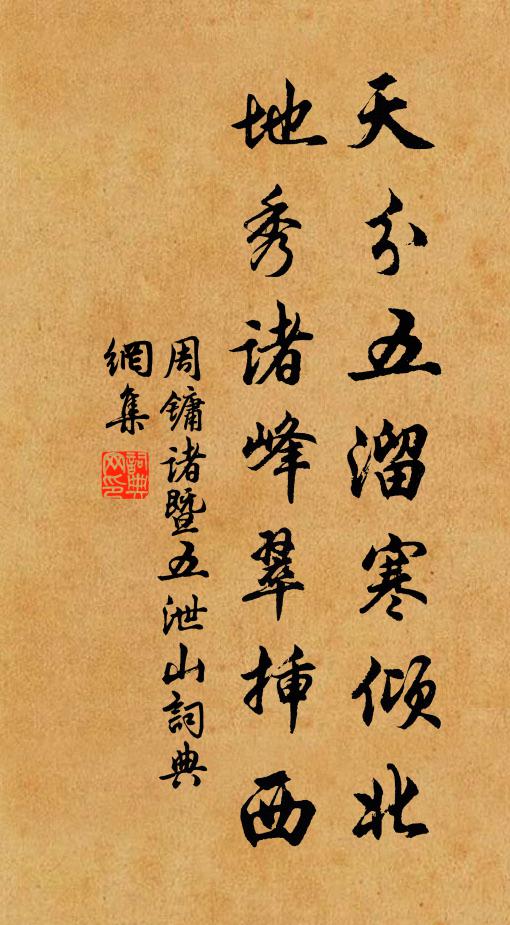 天分五溜寒倾北
地秀诸峰翠插西
周镛诸暨五泄山詞典
網集
詞典
网印